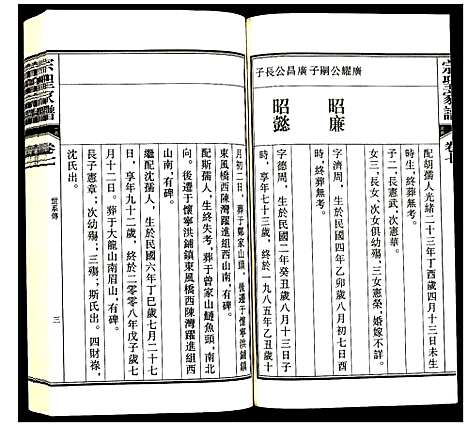 宗聖家譜
卷七
配胡孺人光緒二十三年丁酉歲四月十三日未生
時生，終葬無考。
子二，長憲武，次憲華。
女三，長女、次女俱幼殤，三女憲榮，婚嫁不詳。
廣耀公嗣子
昭廉
字濟周，生於民國四年乙卯歲八月初七日酉
時，終葬無考。
廣昌公長子
昭懿
字德周，生於民國二年癸丑歲八月十三日子
時，享年七十三歲，終於一九八五年乙丑歲十
月初二日，葬于鄭家山頭，後遷于懷寧洪鋪鎮
東風橋西陳灣躍進組西山南，有碑。
配斯孺人，生終失考，葬于曾家山鯉魚頭，南北
向。後遷于懷寧洪鋪鎮東風橋西陳灣躍進組西
山南，有碑。
繼配沈孺人，生於民國六年丁巳歲七月二十七
日，享年九十二歲，終於二零零八年戊子歲七
月十二日。葬于大龍山南眉山，有碑。
長子憲章；次幼殤；三殤；斯氏出。四財祿，
沈氏出。
宗聖家譜
卷二
世系傳
三